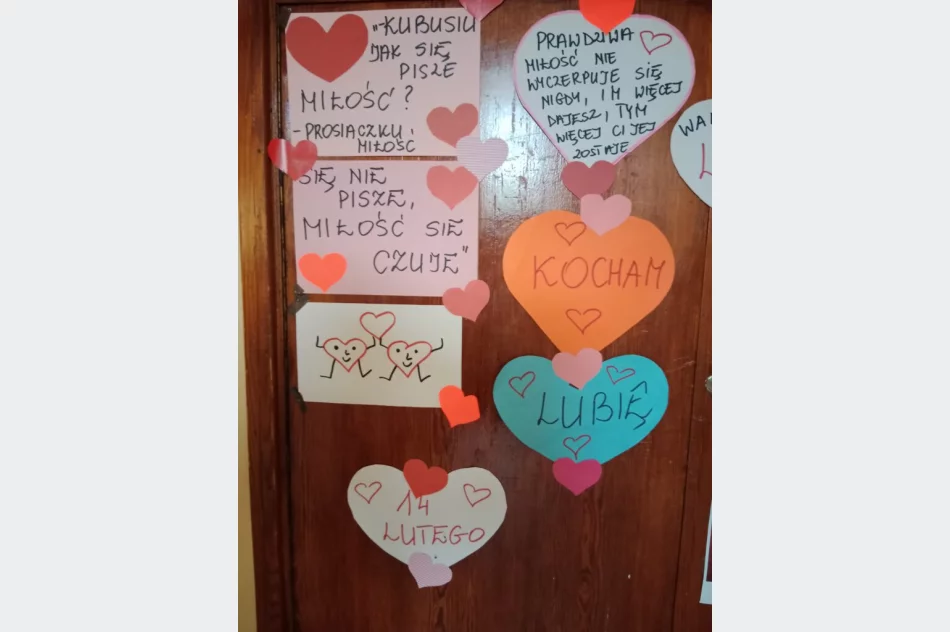 "-KUBUSIU
JAK SIĘ
PISZE
MIŁOŚĆ?
-PROSIACZKU,
MIŁOŚĆ
SIĘ NIE
PISZE,
MIŁOŚĆ SIĘ
CZUJE"
PRAWDZIWA
MIŁOŚĆ NIE
WYCZERPUJE SIĘ
NIGDY, IM WIĘCEJ
DAJESZ, TYM
WIĘCEJ CI JEJ
ZOSTAJE
KOCHAM
LUBIĘ
14
LUTEGO